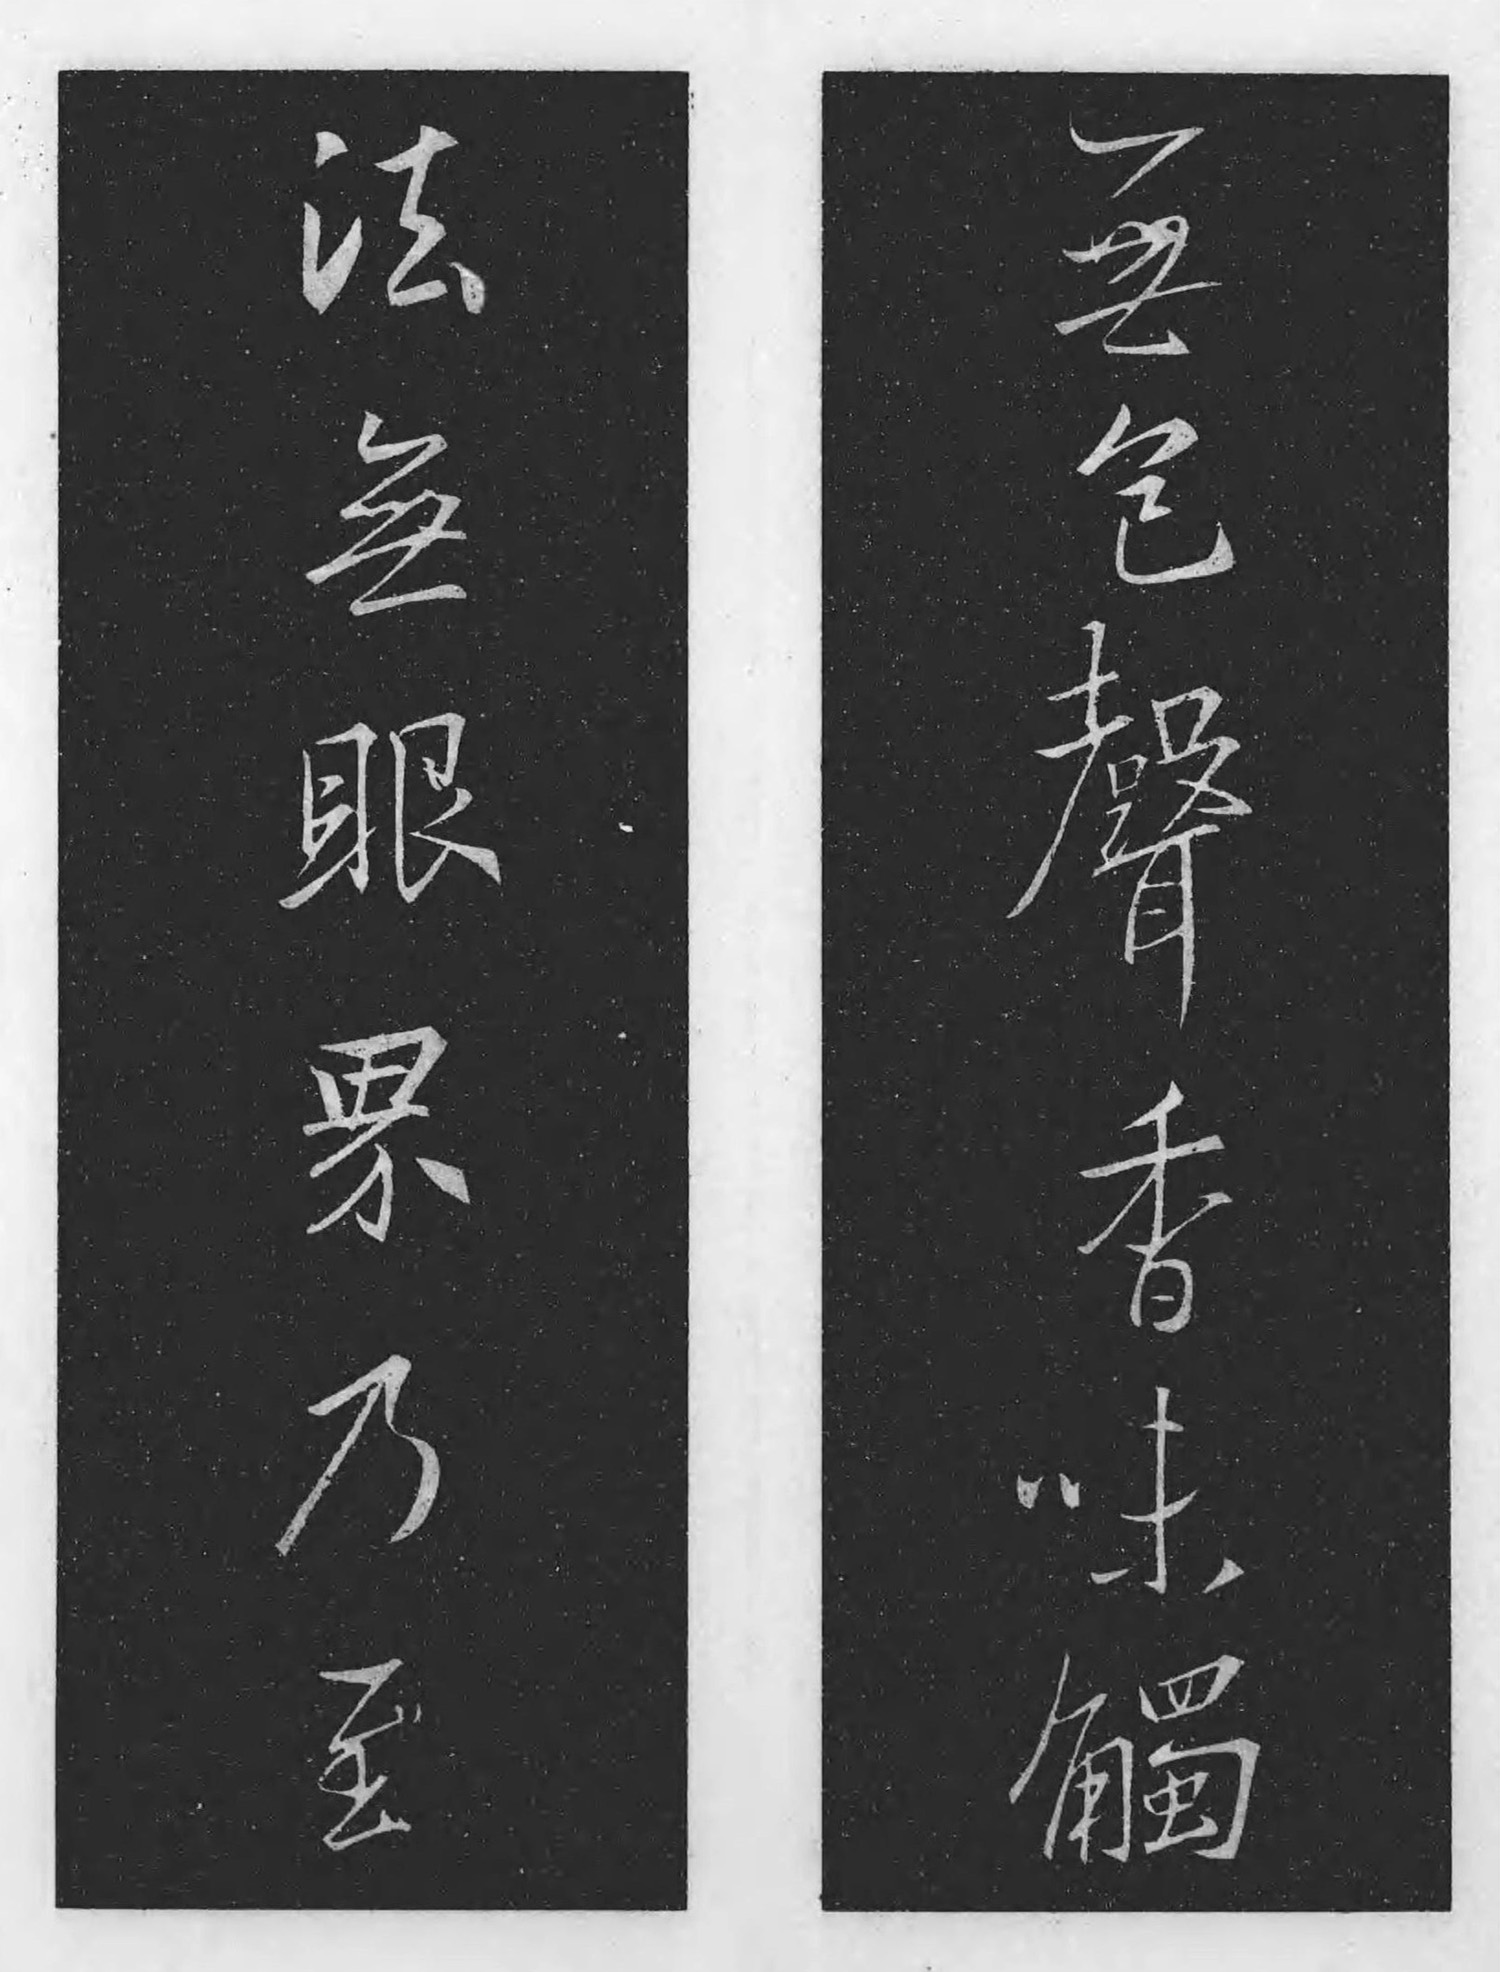 無色聲香味觸
法無眼界乃至